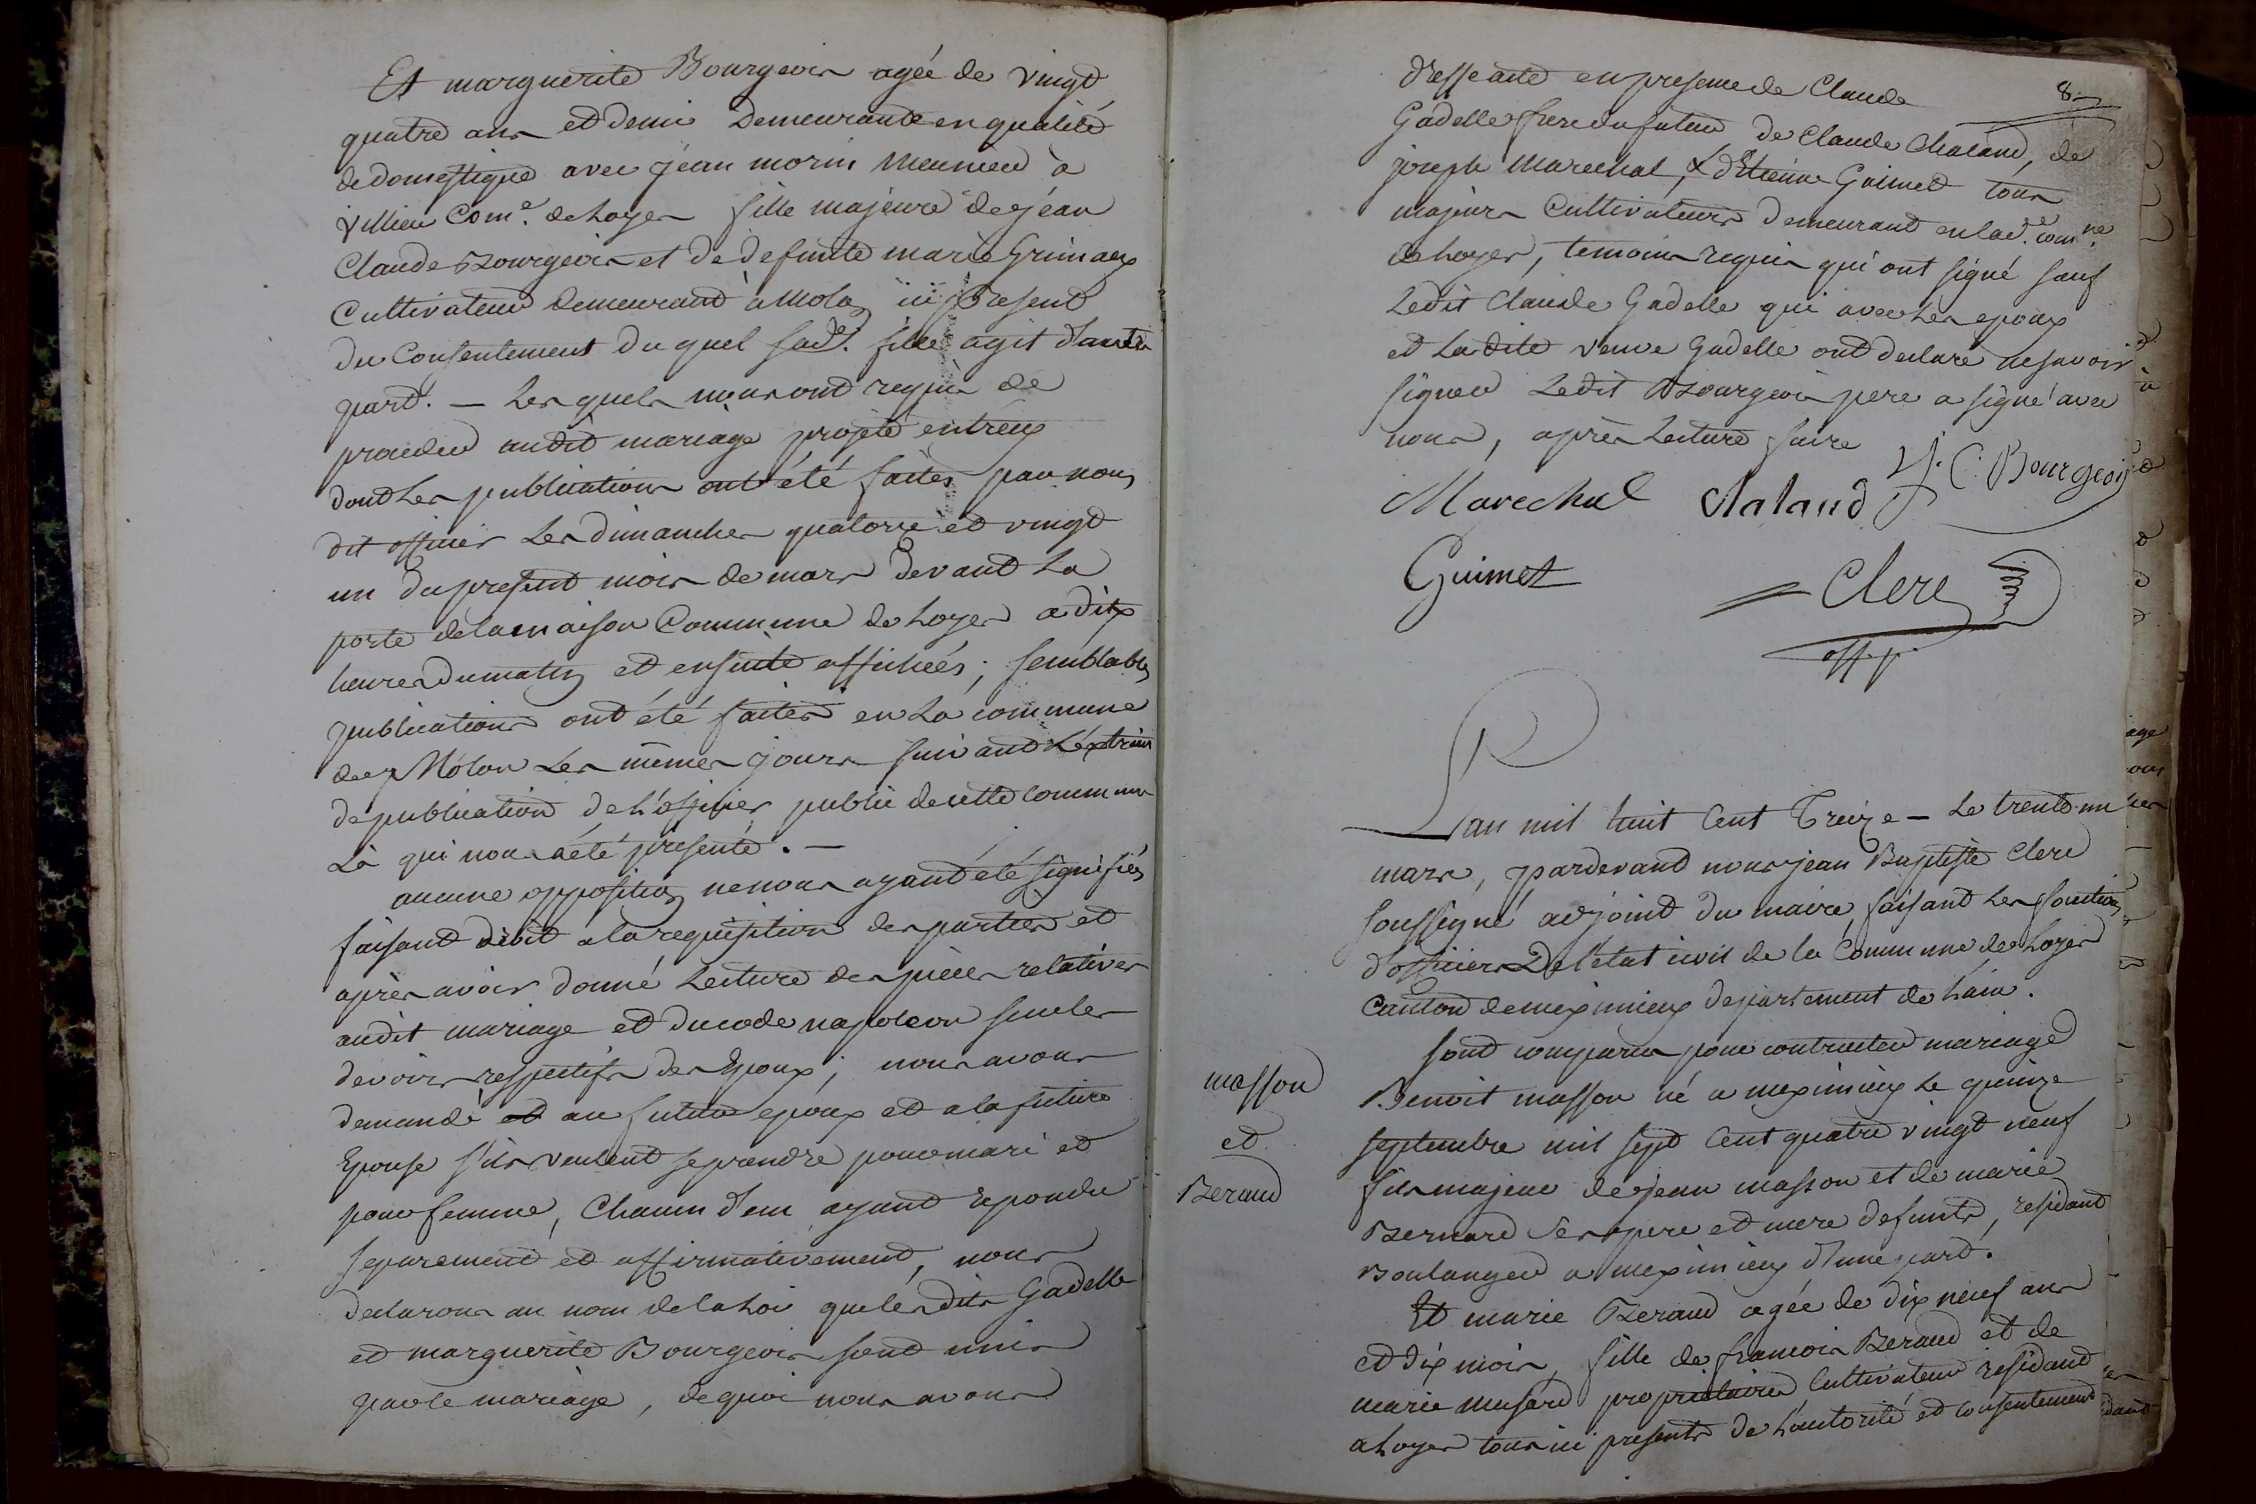 Et marguerite Bourgeois agée de vingt
quatre ans et demi Demeurante en qualité
de domestique avec jéan morin Meunier à
Villieu Com.e de Loyes fille majeure de jéan
Claude Bourgeois et de defunte marie Grimaux
Cultivateur demeurant à Molon ici present
du Consentement du quel lad.e fille agit d'autre
part. — Lesquels nous ont requis de
proceder audit mariage projété entréux
dont Les publications ont été faites par nous
dit officier Les dimanches quatorze et vingt
un du present mois de mars devant La
porte de la maison Commune de Loyes a dix
heures du matin et ensuite affichées ; semblables
publications ont été faites en La commune
de Molon Les mêmes jours suivant L'éxtrait
de publication de L'officier public de cette commune
Là qui nous a été présenté. —
aucune opposition ne nous ayant été signifiés
faisant droit a la requisition des parties et
après avoir donné Lecture des pièces relatives
audit mariage et du code napoleon sur les
devoirs respectifs des Epoux ; nous avons
demandé et au futur epoux et a la future
Epouse s'ils veulent se prendre pour mari et
pour femme, Chacun d'eux ayant repondu
separement et affirmativement, nous
declarons au nom de la Loi que lesdits Gadelle
et marguerite Bourgeois sont unis
par le mariage, de quoi nous avons
8
dressé acte en presence de Claude
Gadelle frere du futeur de Claude Chaland, de
joseph Marechal, & d'Etienne Guimet tous
majeurs Cultivateurs demeurant en lad.e com.ne
de Loyes, temoins requis qui ont signé sauf
Ledit Claude Gadelle qui avec Les epoux
et Ladite veuve Gadelle ont declaré ne savoir
signer Ledit Bourgeois pere a signé avec
nous, après Lecture faire
Marechal Claland J. C. Bourgeois
Guimet Clerc
off. p.
L'an mil huit Cent Treize — Le trente un
mars, pardevant nous jean Baptiste Clerc
soussigné adjoint du maire, faisant Les fonctions
d'officier De l'état civil de la Commune de Loyes
Canton de meximieux departement de L'ain.
masson
et
Beraud
sont comparus pour contracter mariage
Benoit masson né a meximieux Le quinze
septembre mil sept Cent quatre vingt neuf
fils majeur de jean masson et de marie
Bernard Ses pere et mere defunts, residant
Boulanger a meximieux d'une part.
Et marie Beraud agée de dix neuf ans
et dix mois, fille de francois Beraud et de
marie propriétaires Cultivateur residant
a Loyes tous ici presents de L'autorité et consentement